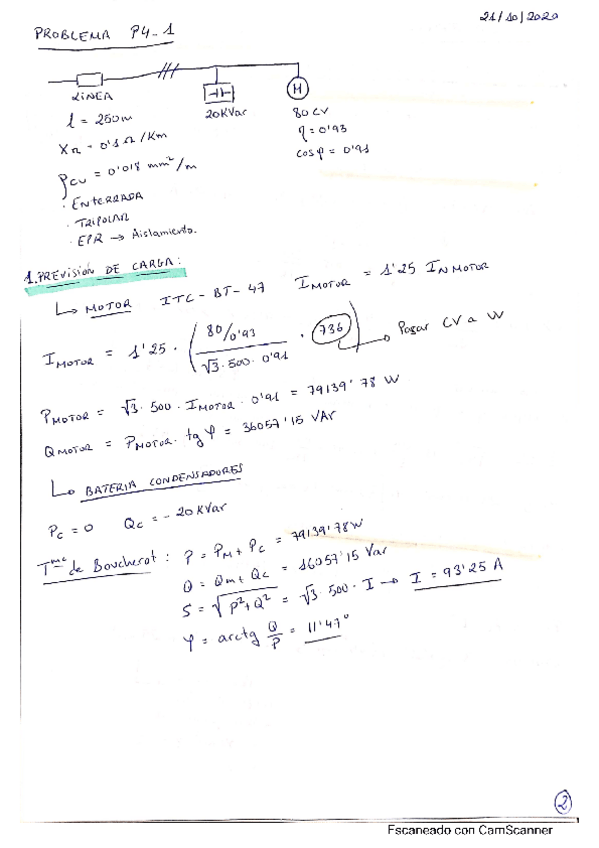 21/10/2020
PROBLEMA P4-1
LINEA
20KVar
M
l = 250m
80 CV
XΩ = 0'1 Ω/Km
η = 0'93
ρcu = 0'018 mm²/m
cos φ = 0'91
· ENTERRADA
· TRIPOLAR
· EPR → Aislamiento.
1. PREVISIÓN DE CARGA:
↳ MOTOR ITC-BT-47 I MOTOR = 1'25 I N MOTOR
I MOTOR = 1'25 · ( 80/0'93 / √3·500·0'91 · 736 ) → Pasar CV a W
P MOTOR = √3·500 · I MOTOR · 0'91 = 79139'78 W
Q MOTOR = P MOTOR · tg φ = 36057'15 VAr
↳ BATERIA CONDENSADORES
Pc = 0 Qc = - 20 KVar
Tma de Boucherot: P = PM + Pc = 79139'78W
Q = Qm + Qc = 16057'15 Var
S = √P²+Q² = √3·500·I → I = 93'25 A
φ = arctg Q/P = 11'47°
2
Escaneado con CamScanner